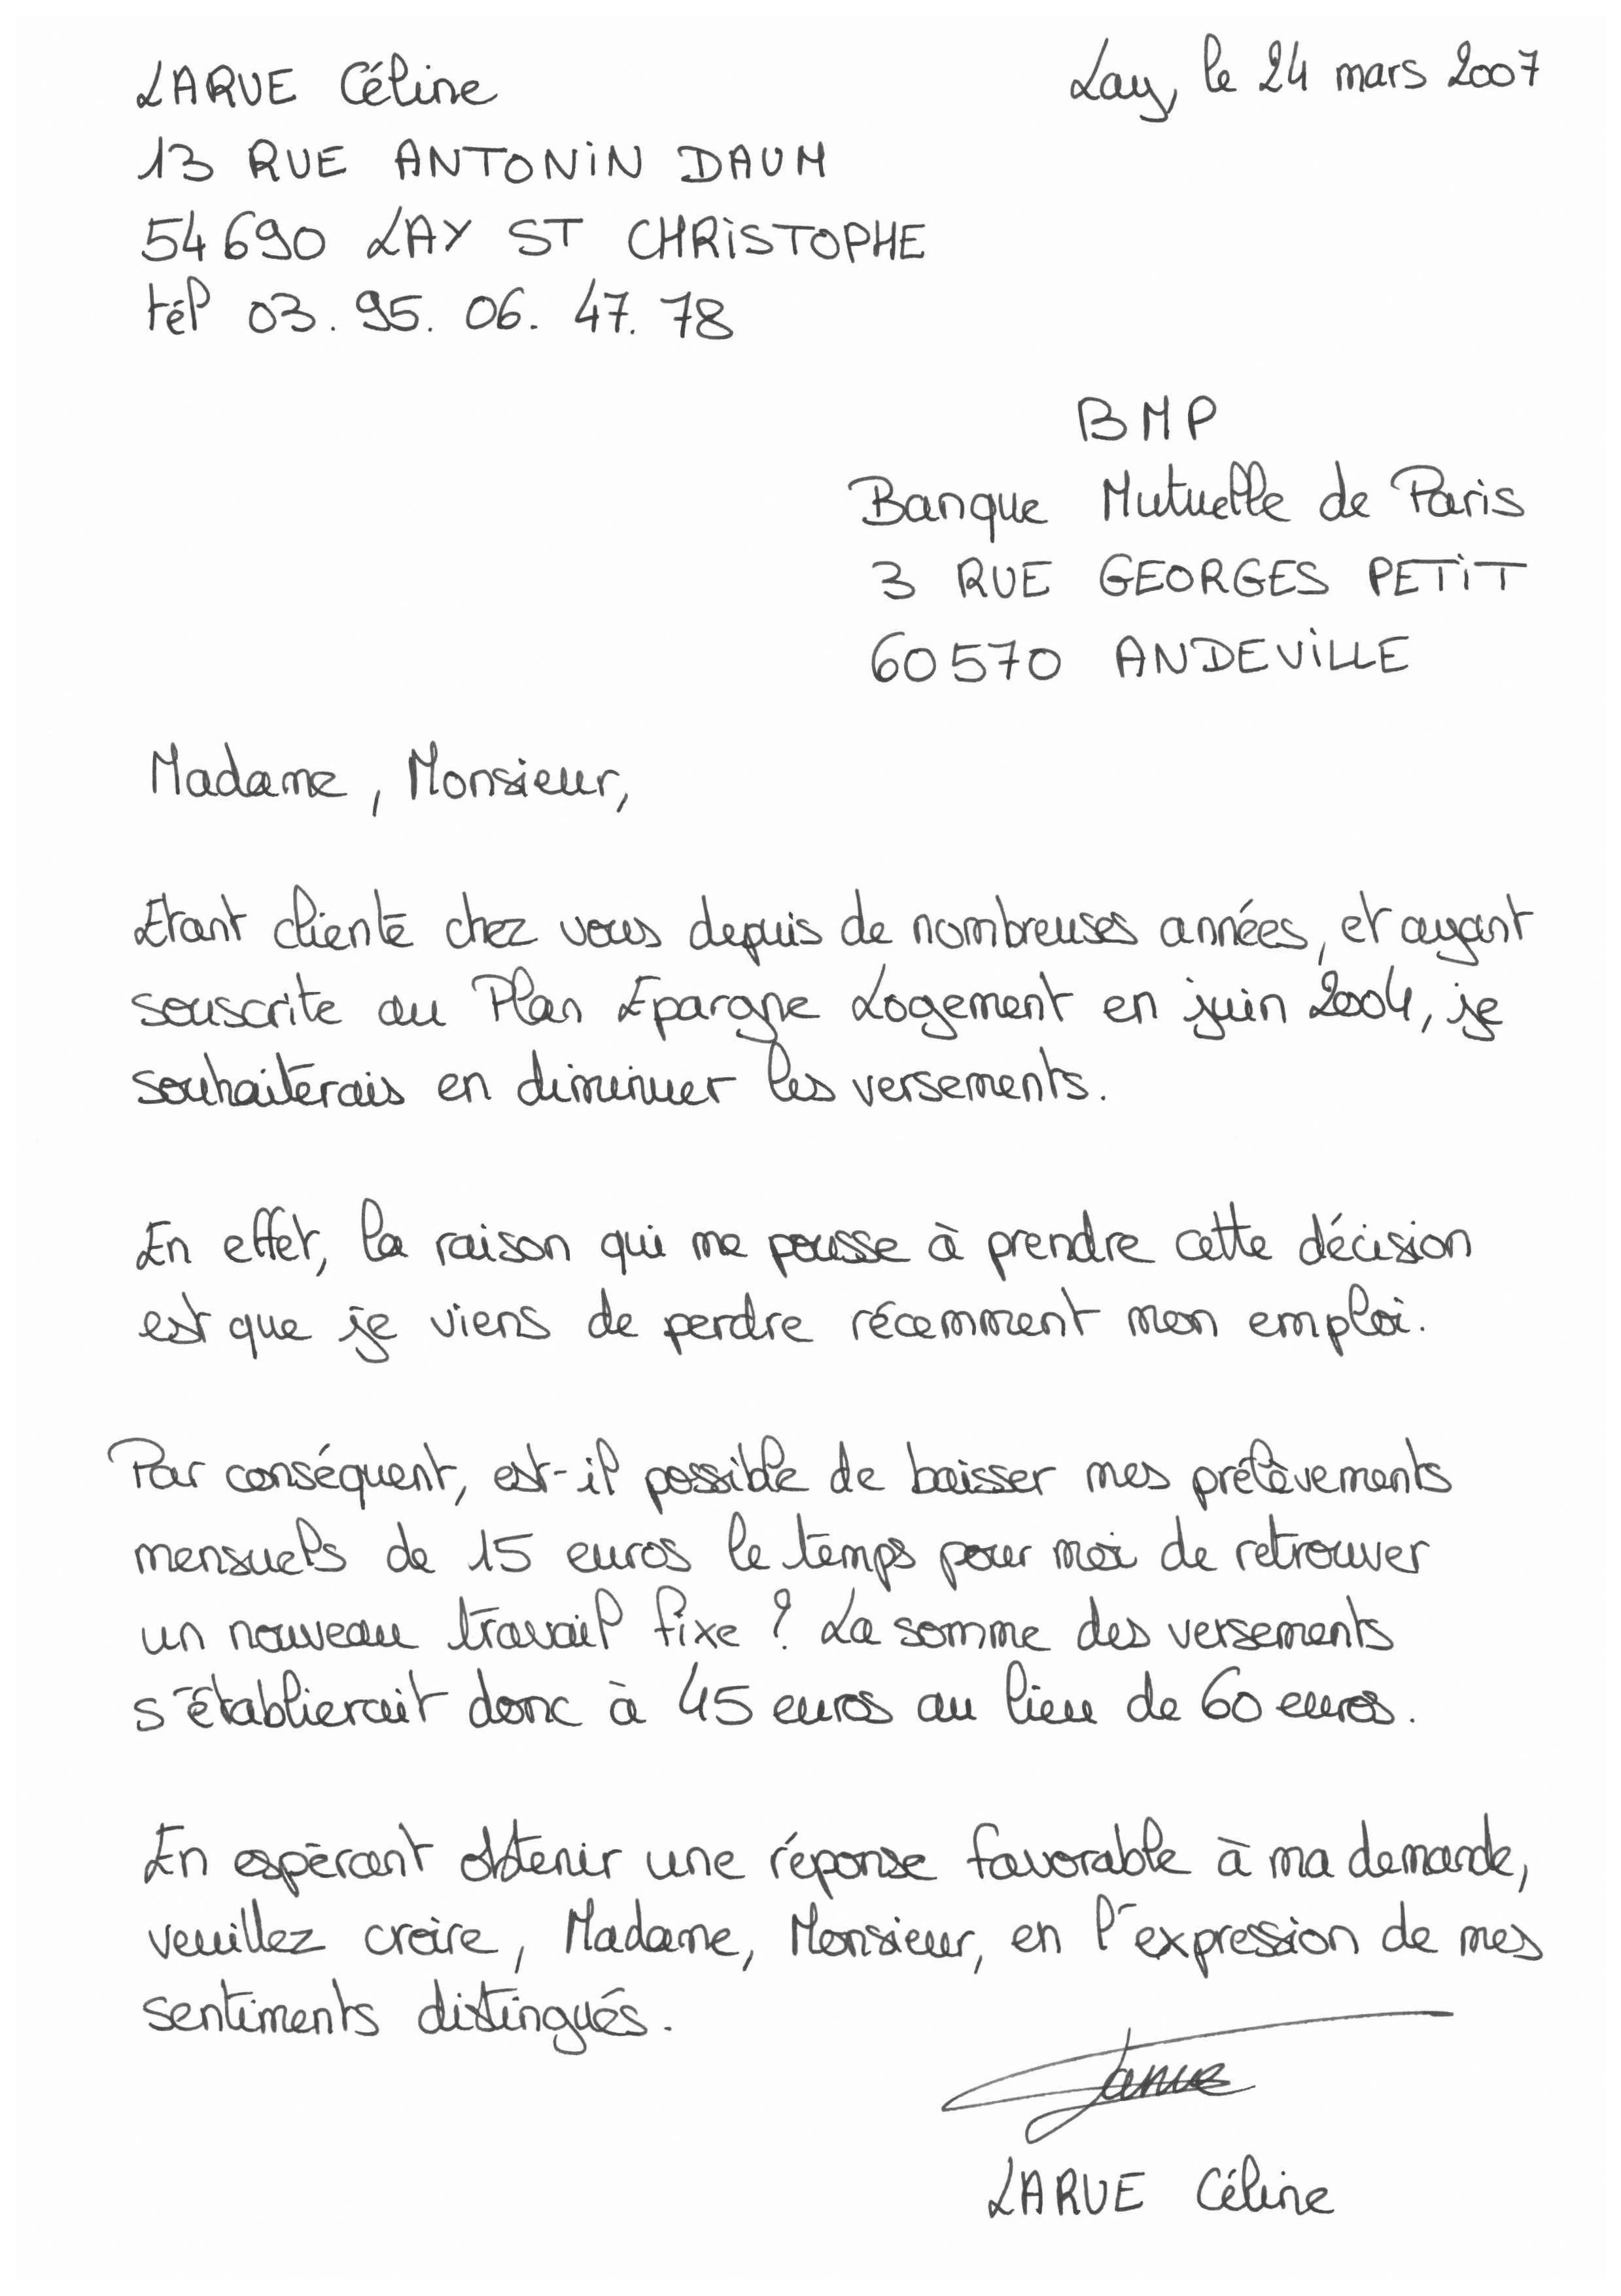 LARUE Céline
Lay, le 24 mars 2007
13 RUE ANTONIN DAUM
54690 LAY ST CHRISTOPHE
tél 03.95.06.47.78
BMP
Banque Mutuelle de Paris
3 RUE GEORGES PETIT
60570 ANDEVILLE
Madame, Monsieur,
Etant cliente chez vous depuis de nombreuses années, et ayant
souscrite au Plan Epargne Logement en juin 2004, je
souhaiterais en diminuer les versements.
En effet, la raison qui me pousse à prendre cette décision
est que je viens de perdre récemment mon emploi.
Par conséquent, est-il possible de baisser mes prélèvements
mensuels de 15 euros le temps pour moi de retrouver
un nouveau travail fixe ? La somme des versements
s'établierait donc à 45 euros au lieu de 60 euros.
En espérant obtenir une réponse favorable à ma demande,
veuillez croire, Madame, Monsieur, en l'expression de mes
sentiments distingués.
Larue
LARUE Céline